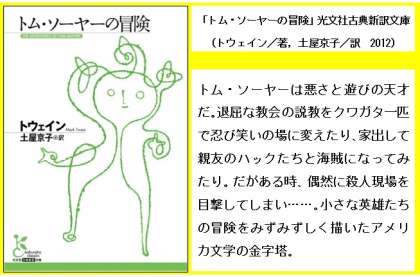 トム・ソーヤーの冒険
THE ADVENTURES OF TOM SAWYER
トウェイン
Mark Twain
土屋京子●訳
kobunsha
classics
光文社古典新訳文庫
「トム・ソーヤーの冒険」光文社古典新訳文庫
(トウェイン/著，土屋京子/訳　2012)
トム・ソーヤーは悪さと遊びの天才
だ。退屈な教会の説教をクワガタ一匹
で忍び笑いの場に変えたり、家出して
親友のハックたちと海賊になってみ
たり。だがある時、偶然に殺人現場を
目撃してしまい……。小さな英雄たち
の冒険をみずみずしく描いたアメリ
カ文学の金字塔。